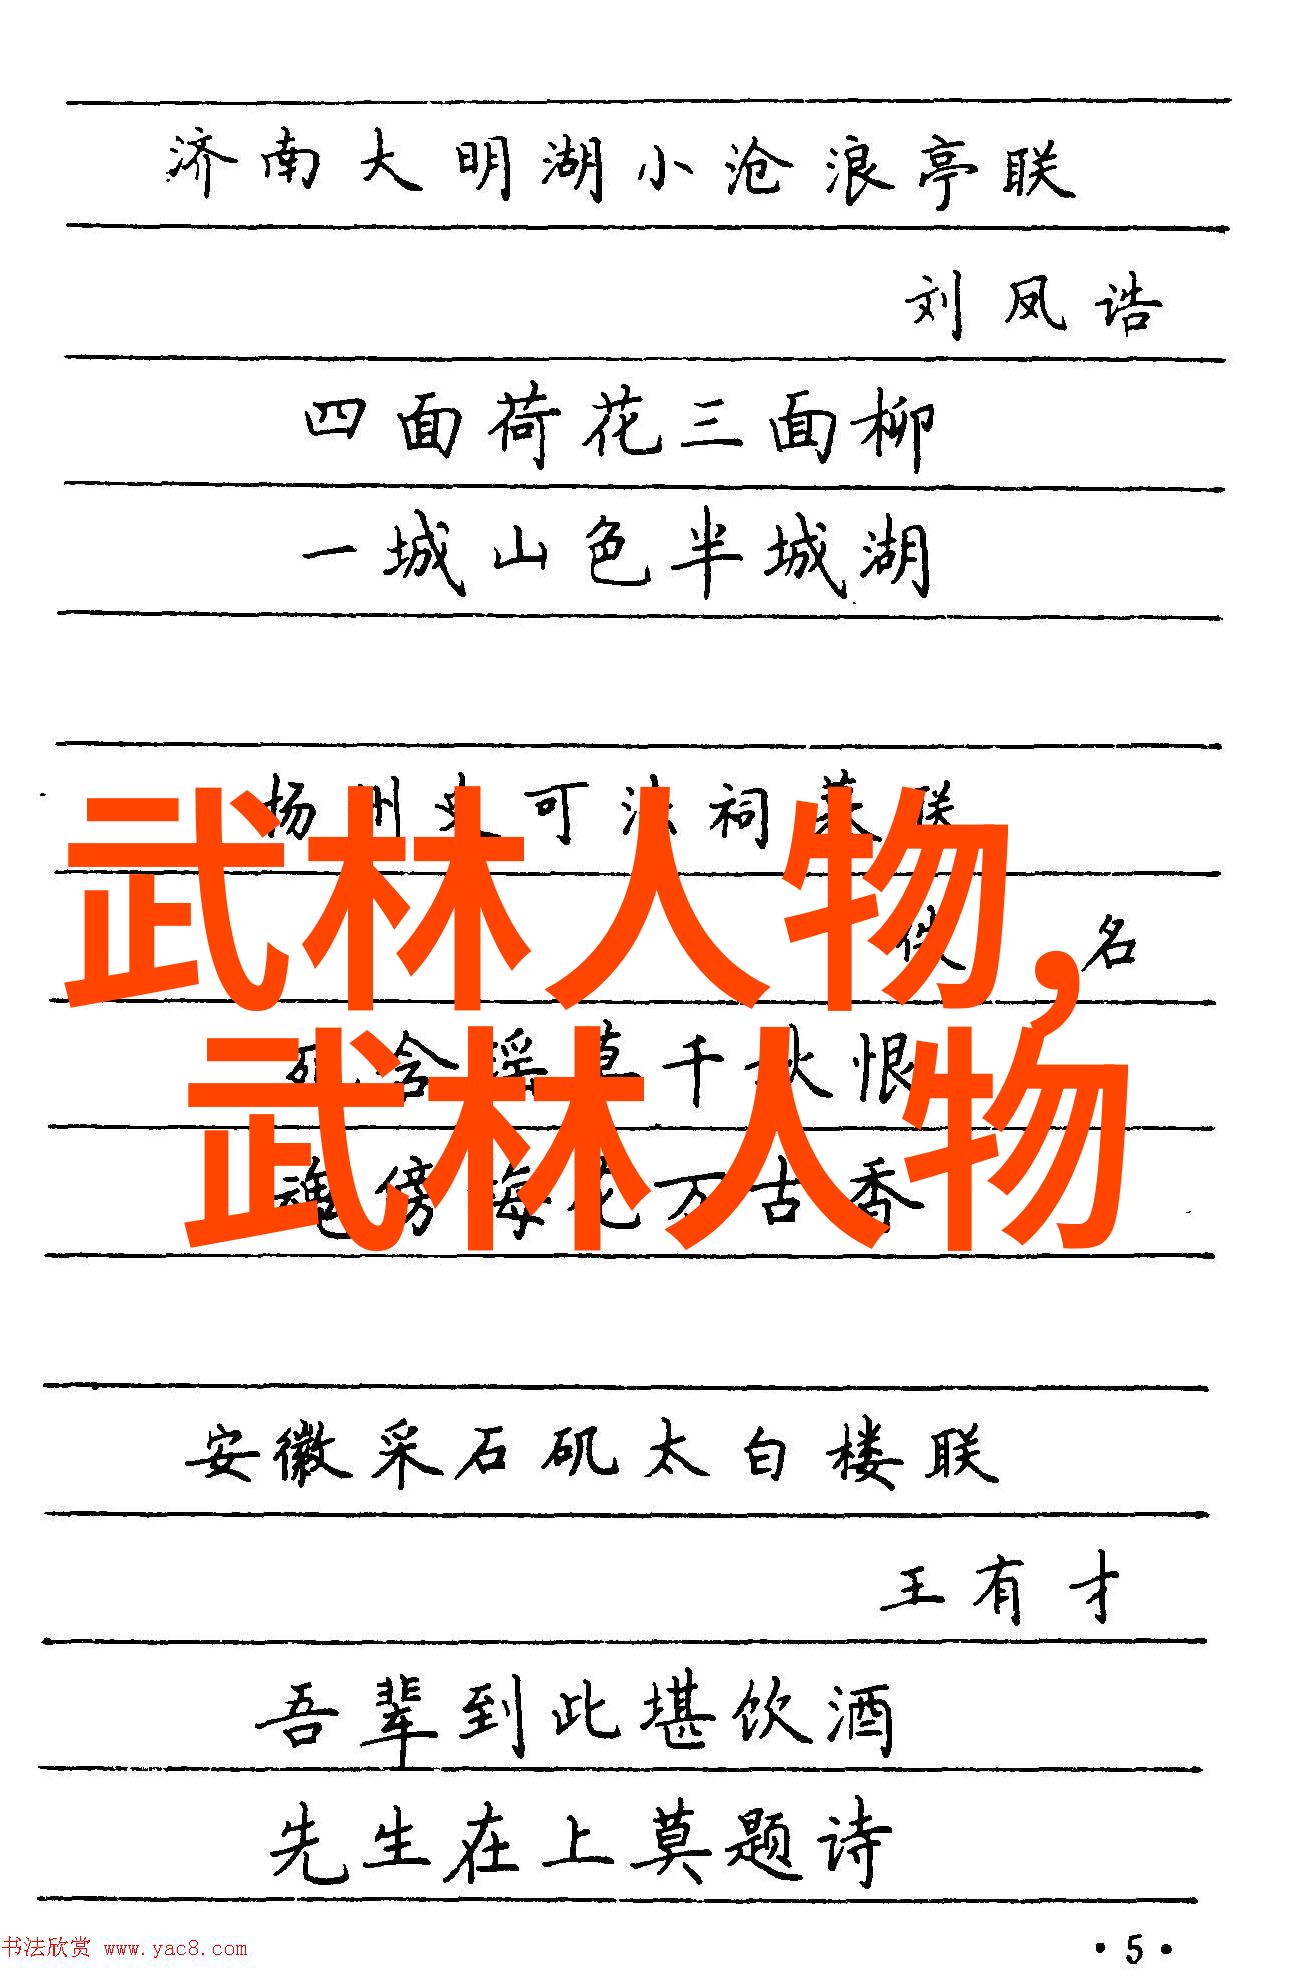 济南大明湖小沧浪亭联
刘凤诰
四面荷花三面柳
一城山色半城湖
扬州史可法祠墓联
佚名
武林人物,
千秋恨
武林人物
魂傍梅花万古香
安徽采石矶太白楼联
王有才
吾辈到此堪饮酒
先生在上莫题诗
书法欣赏 www.yac8.com
·5·